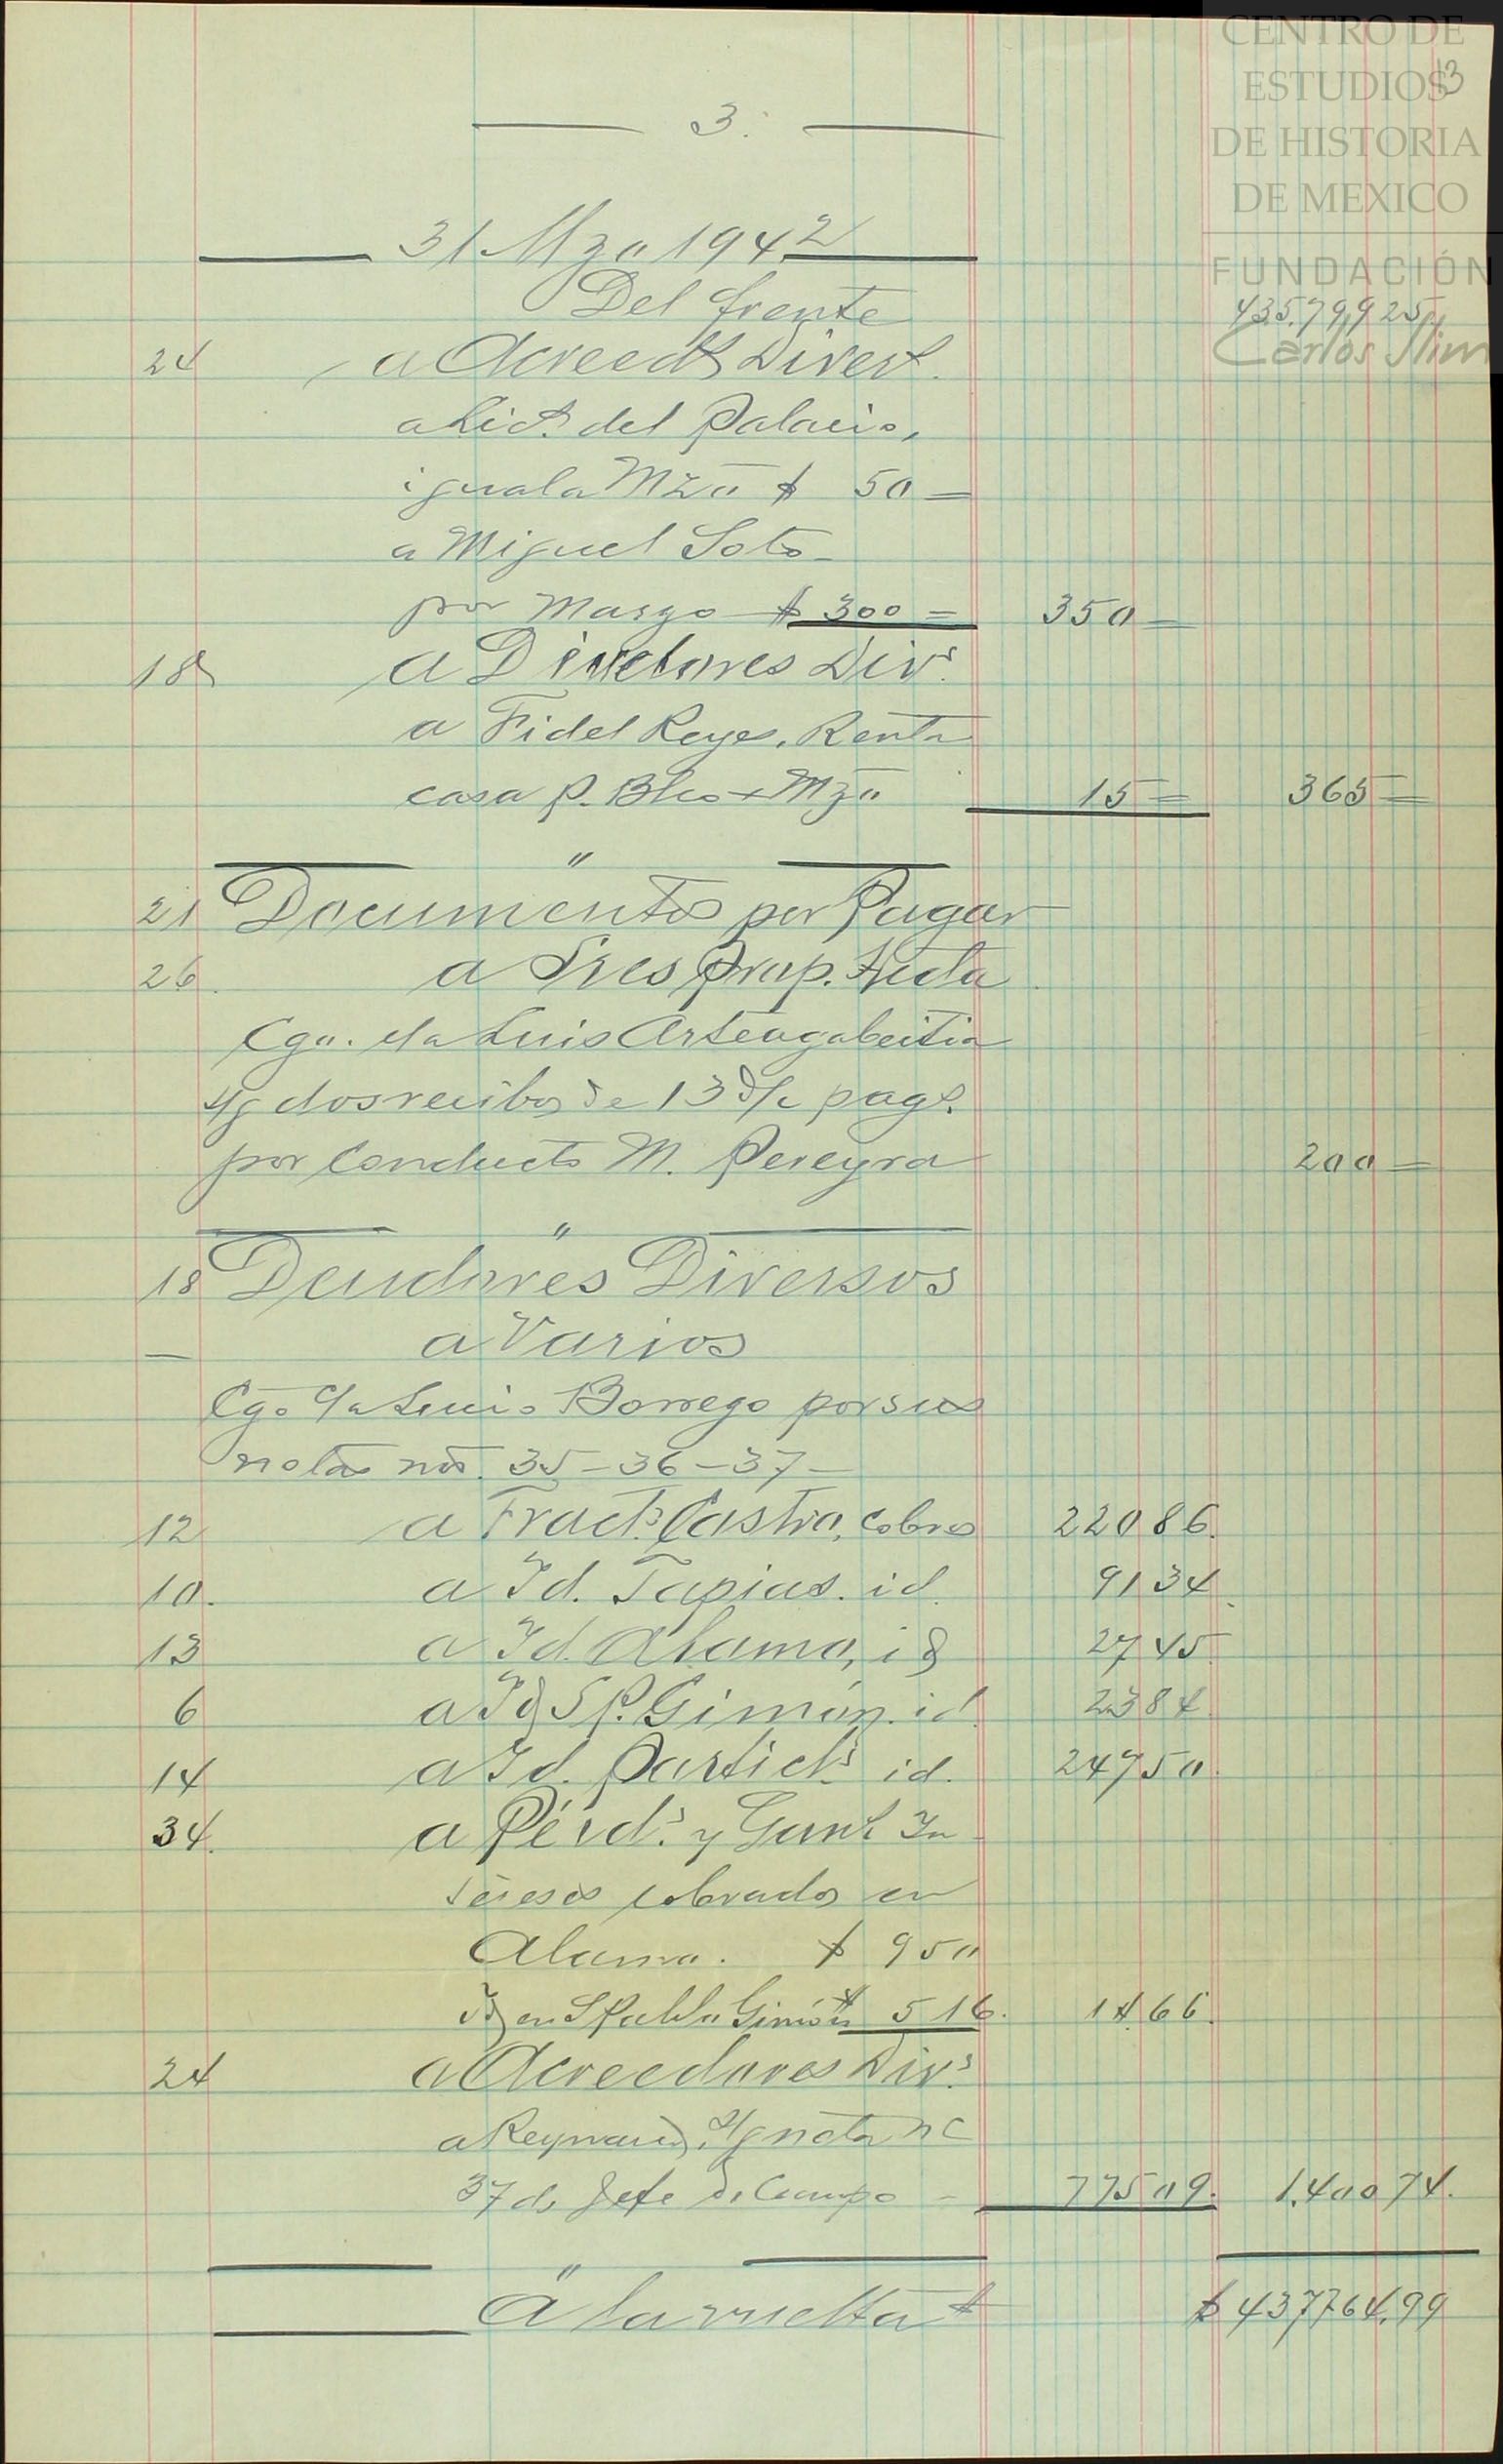 CENTRO DE
ESTUDIOS
DE HISTORIA
DE MEXICO
FUNDACIÓN
Carlos Slim
13
3.
31 Mzo 1942
Del frente 435.799 25
24 a Acreeds Divers.
a Lic. del Palacio,
iguala Mzo $ 50 =
a Miguel Soto
por Marzo $ 300 = 350 =
18 a Deudores Divs.
a Fidel Reyes, Renta
casa P. Blco Mzo 15 = 365 =
"
21 Documentos por Pagar
26. a Sres Prop. Hda
Cgo. a Luis Arteagabeitia
s/g dos recibos de 13 d/c pags.
por conducto M. Pereyra 200 =
"
18 Deudores Diversos
— a Varios
Cgo. a Luis Borrego por sus
notas nos. 35 - 36 - 37 -
12 a Fract. Castro, cobros 220 86.
10. a Id. Tapias. id. 91 34.
13 a Id. Alamo, id 27 45.
6 a Id S P. Gimón. id. 23 84.
14 a Id. Particls. id. 247 50.
34. a Pérds. y Gans In
tereses cobrados en
Alamo. $ 9 50
Id en S Pablo Gimón $ 5 16. 14 66.
24 a Acreedores Divs.
a Reynard, s/g nota n
37 de Jefe de Campo - 775 09. 1.400 74.
"
A la vuelta $ 437764.99